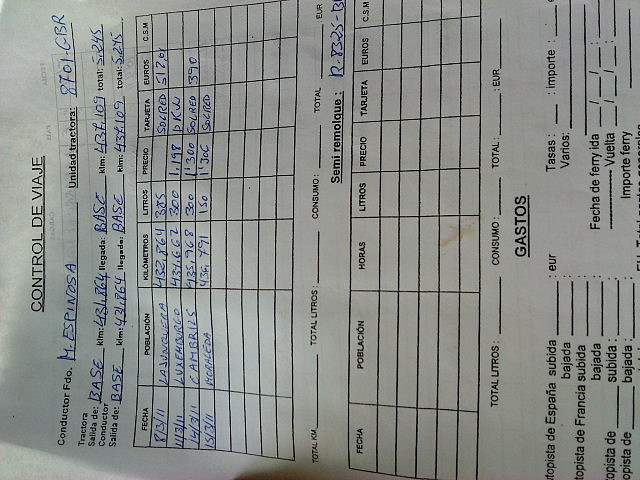 CONTROL DE VIAJE
Conductor Fdo. M. ESPINOSA Unidad tractora: 8701-CBR
Tractora
Salida de: BASE klm: 431,864 llegada: BASE klm: 437,109 total: 5,245
Conductor
Salida de: BASE klm: 431,864 llegada: BASE klm: 437,109 total: 5,245
FECHA POBLACIÓN KILÓMETROS LITROS PRECIO TARJETA EUROS C.S.M
8/3/11 LAJUNQUERA 432,864 385 SOLRED 512,01
11/3/11 LUXEMBURGO 300 1,198 DKV
14/3/11 CAMBRILS 435,968 300 1'300 SOLRED 390
15/3/11 436,791 150 SOLRED
TOTAL KM. TOTAL LITROS: CONSUMO: TOTAL EUR
Semi remolque:
FECHA POBLACIÓN HORAS LITROS PRECIO TARJETA EUROS C.S.M
TOTAL LITROS: CONSUMO: TOTAL: EUR
GASTOS
topista de España subida : eur Tasas : importe :
bajada : Varios:
topista de Francia subida : Fecha de ferry ida
bajada : Vuelta
topista de subida : Importe ferry
bajada :